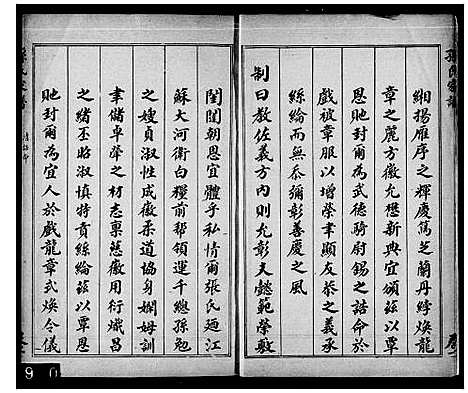 緗揚雁序之輝慶篤芝蘭丹綍煥龍
章之麗方徽允懋新典宜頒茲以覃
恩貤封爾為武德騎尉錫之誥命於
戲被章服以增榮聿顯友恭之義承
絲綸而無忝彌彰善慶之風
制曰教佐義方內則允彰夫懿範榮敷
閨闥朝恩宜體乎私情爾張氏廼江
蘇大河衛白糧前幫領運千總孫勉
之嫂貞淑性成徽柔道協身嫻姆訓
聿儲卓犖之材志稟慈徽用衍熾昌
之緒丕昭淑慎特賁絲綸茲以覃恩
貤封爾為宜人於戲龍章式煥令儀
90